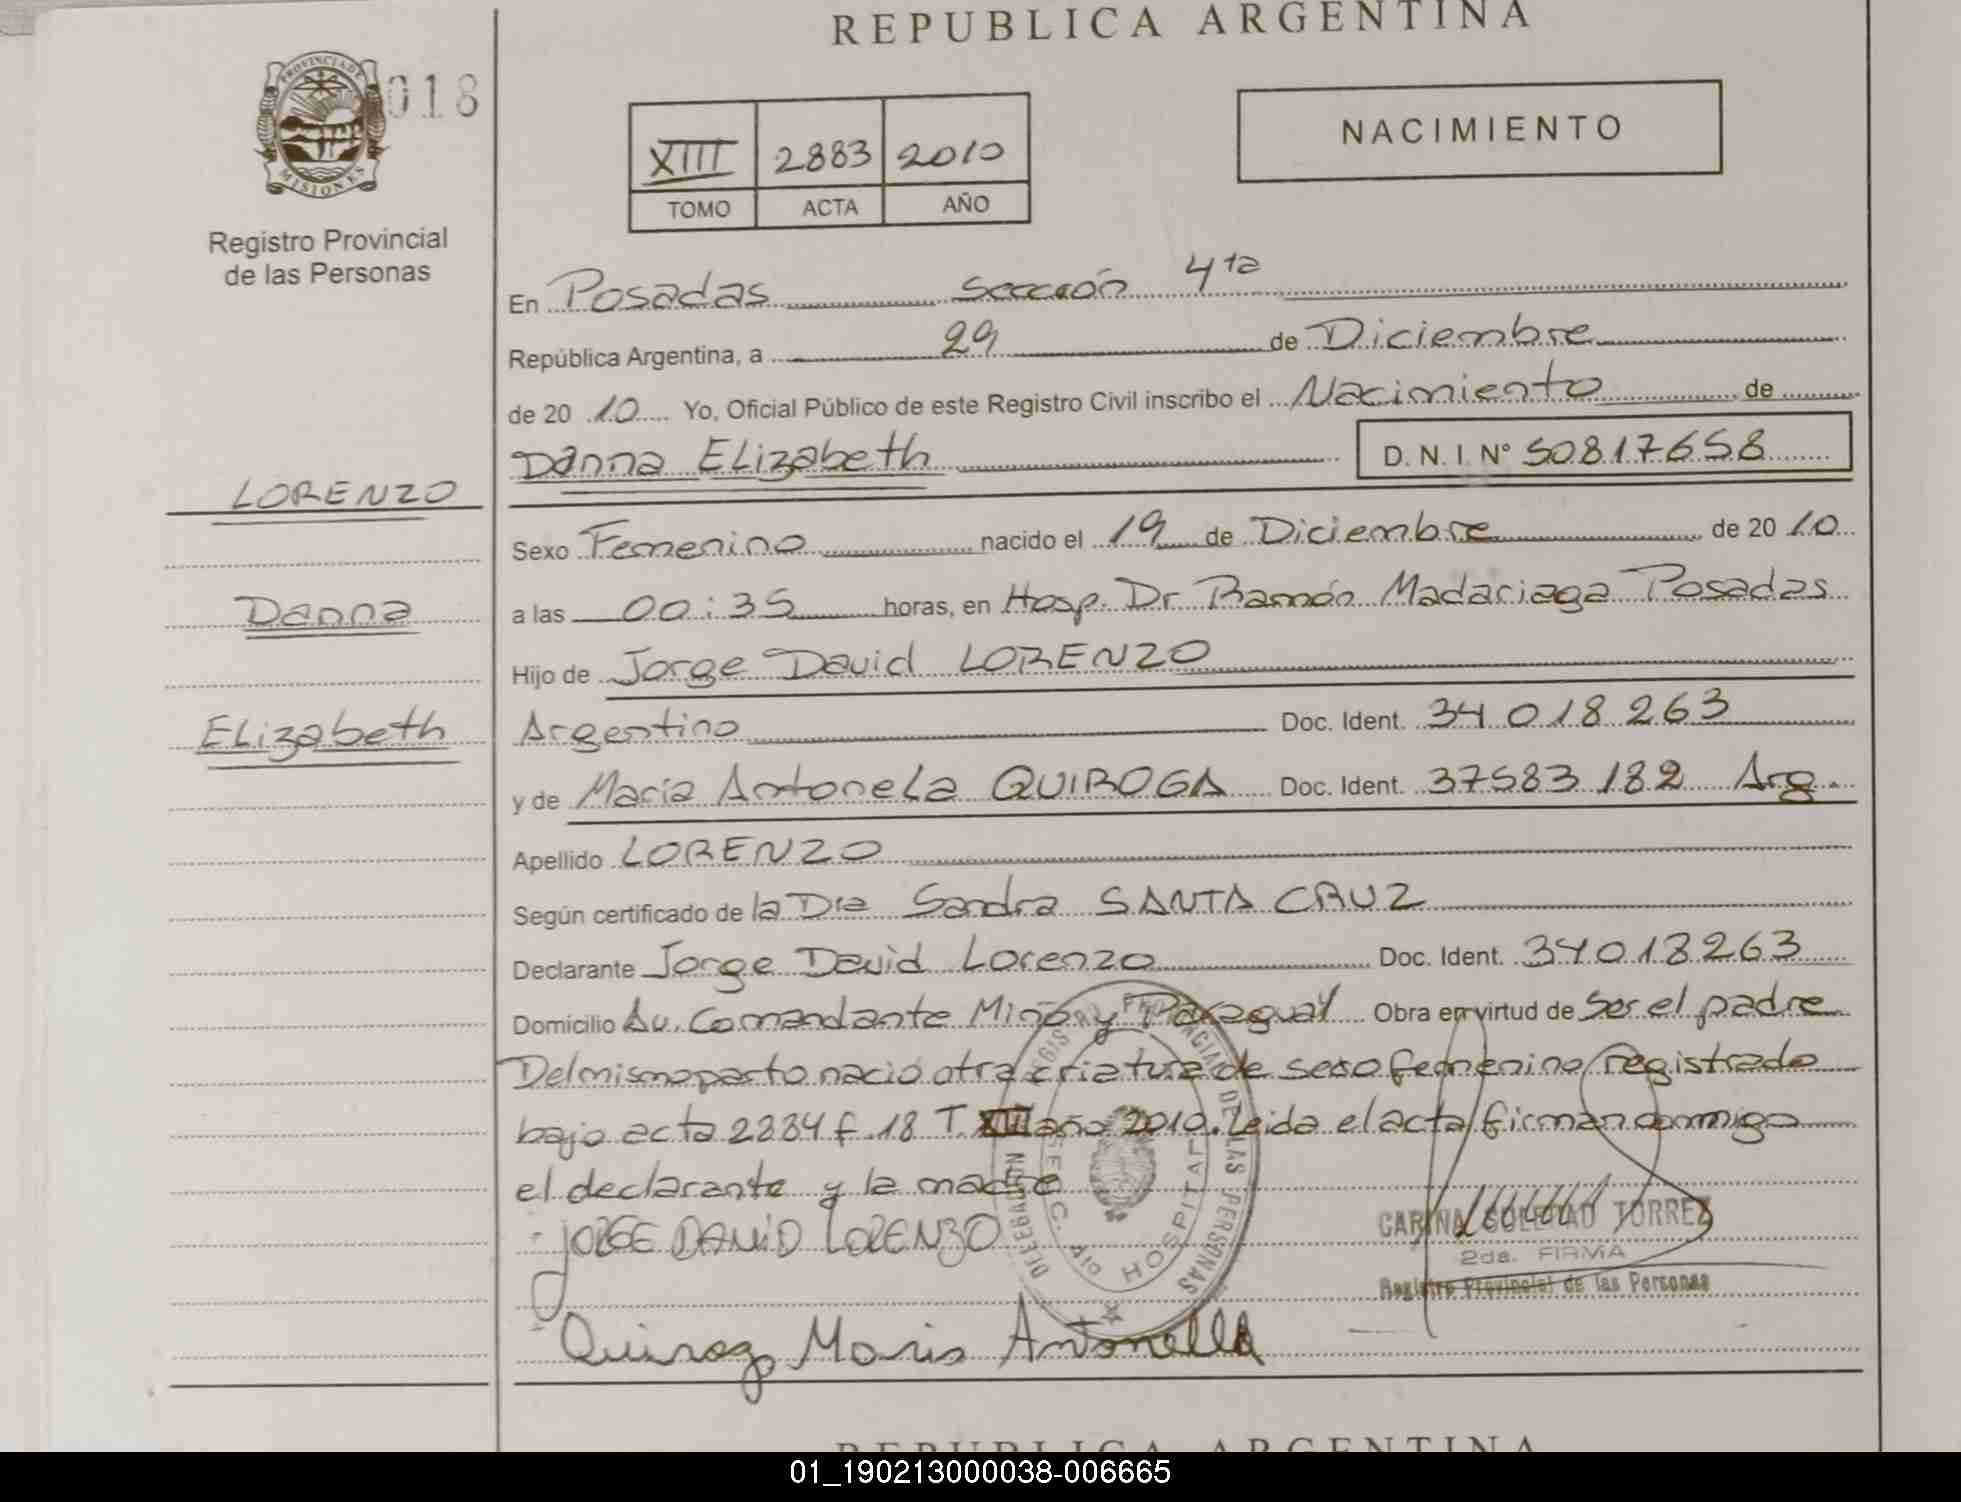 REPUBLICA ARGENTINA
PROVINCIA DE MISIONES
018
Registro Provincial
de las Personas
XIII 2883 2010
TOMO ACTA AÑO
NACIMIENTO
En Posadas Sección 4ta
República Argentina, a 29 de Diciembre
de 20 10 Yo, Oficial Público de este Registro Civil inscribo el Nacimiento de
Danna ELizabeth D. N. I. N° 50817658
LORENZO
Danna
ELizabeth
Sexo Femenino nacido el 19 de Diciembre de 20 10
a las 00:35 horas, en Hosp. Dr Ramón Madariaga Posadas
Hijo de Jorge David LORENZO
Argentino Doc. Ident. 34 018 263
y de Maria Antonela QUIROGA Doc. Ident. 37583 182 Arg.
Apellido LORENZO
Según certificado de la Dra Sandra SANTA CRUZ
Declarante Jorge David Lorenzo Doc. Ident. 34018263
Domicilio Av. Comandante Miño y Paraguay Obra en virtud de Ser el padre
Del mismo parto nació otra criatura de sexo femenino registrado
bajo acta 2884 f. 18 T. XIII año 2010. Leida el acta firman conmigo
el declarante y la madre
JORGE DAVID LORENZO
CARINA SOLEDAD TORREZ
2da. FIRMA
Registro Provincial de las Personas
Maria Antonella
REGISTRO PROVINCIAL DE LAS PERSONAS
DELEGACION
SECC. 4ta HOSPITAL
REPUBLICA ARGENTINA
01_190213000038-006665